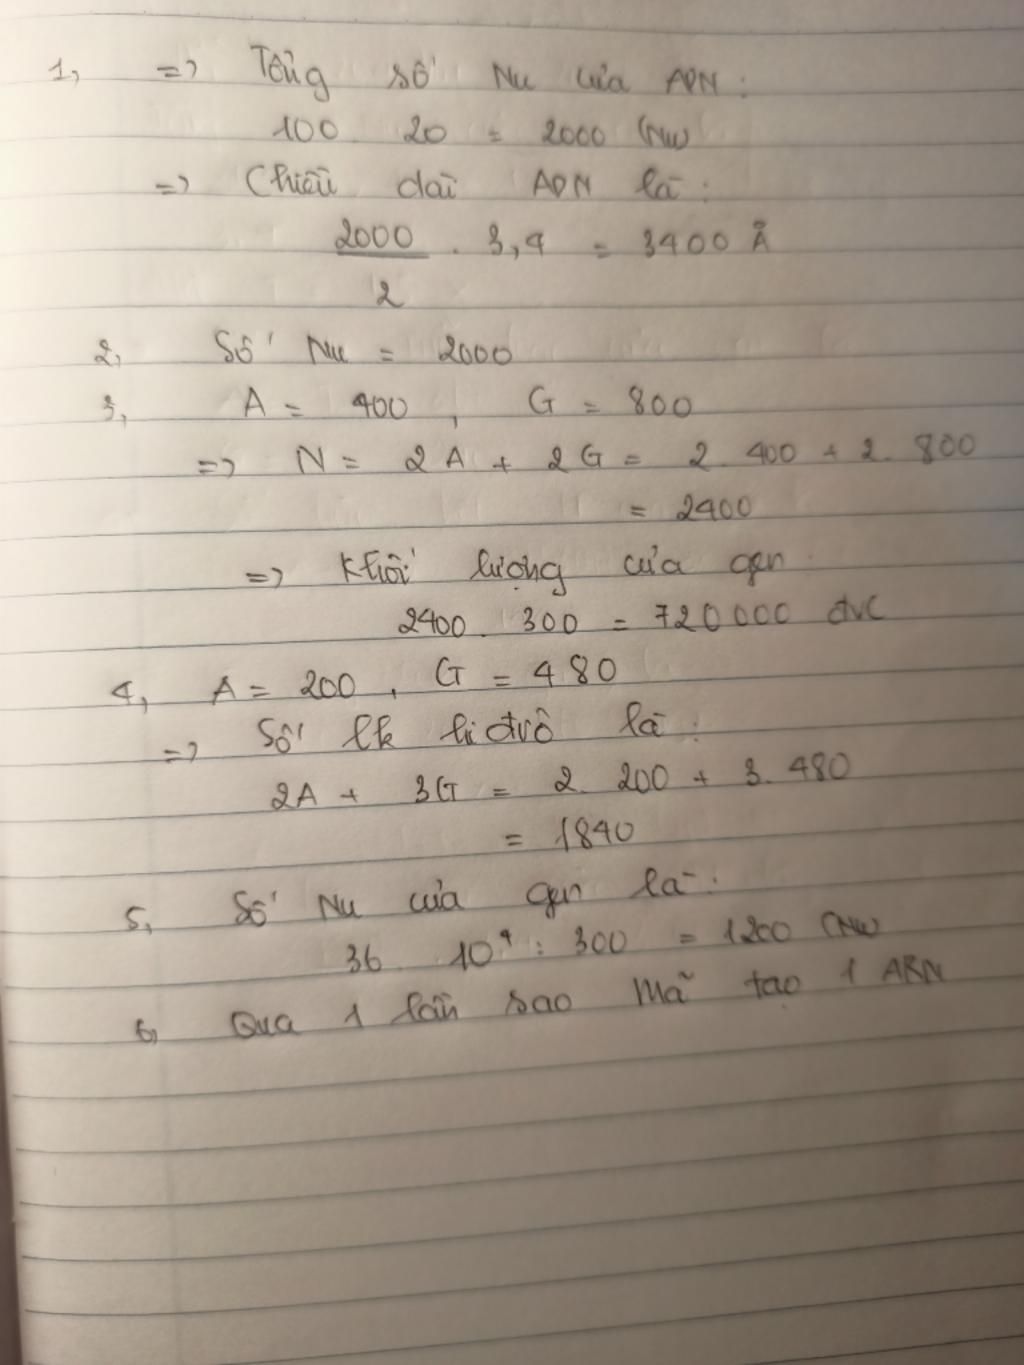 1, => Tổng số Nu của ADN :
100 . 20 = 2000 (Nu)
=> Chiều dài ADN là :
2000 . 3,4 = 3400 Å
2
2, Số Nu = 2000
3, A = 400 , G = 800
=> N = 2A + 2G = 2 . 400 + 2 . 800
= 2400
=> Khối lượng của gen
2400 . 300 = 720000 đvC
4, A = 200 , G = 480
=> Số lk hiđrô là :
2A + 3G = 2 . 200 + 3 . 480
= 1840
5, Số Nu của gen là :
36 10⁴ : 300 = 1200 (Nu)
6, Qua 1 lần sao mã tạo 1 ARN